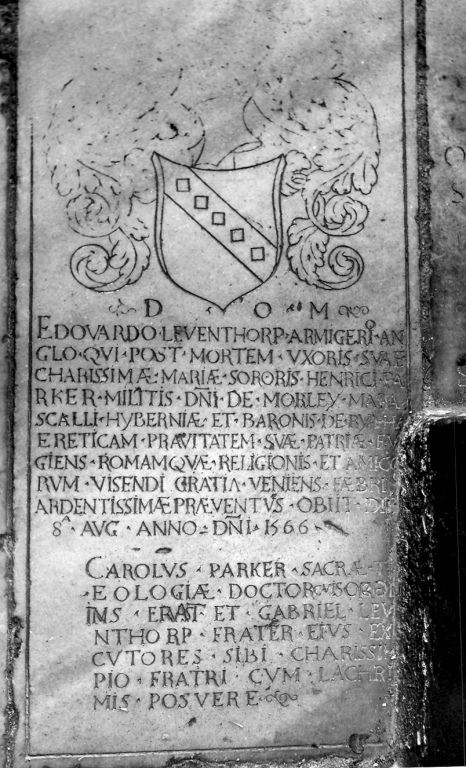 D O M
EDOVARDO·LEVENTHORP·ARMIGERO·AN
GLO·QVI·POST·MORTEM·VXORIS·SVAE
CHARISSIMÆ·MARIÆ·SORORIS·HENRICI·PA
RKER·MILITIS·DÑI·DE·MORLEY·MARA
SCALLI·HYBERNIÆ·ET·BARONIS·DE
ERETICAM·PRAVITATEM·SVÆ·PATRIÆ·FV
GIENS·ROMAMQVÆ·RELIGIONIS·ET·AMICO
RVM·VISENDI·GRATIA·VENIENS·FÆBRI
ARDENTISSIMÆ·PRÆVENTVS·OBIIT·DIE
8ᴬ·AVG·ANNO·DÑI·1566
CAROLVS·PARKER·SACRÆ·T
EOLOGIÆ·DOCTOR
ERAT·ET·GABRIEL·LEVE
NTHORP·FRATER·EIVS·EXE
CVTORES·SIBI·CHARISSIM
PIO·FRATRI·CVM·LACHRI
MIS·POSVERE